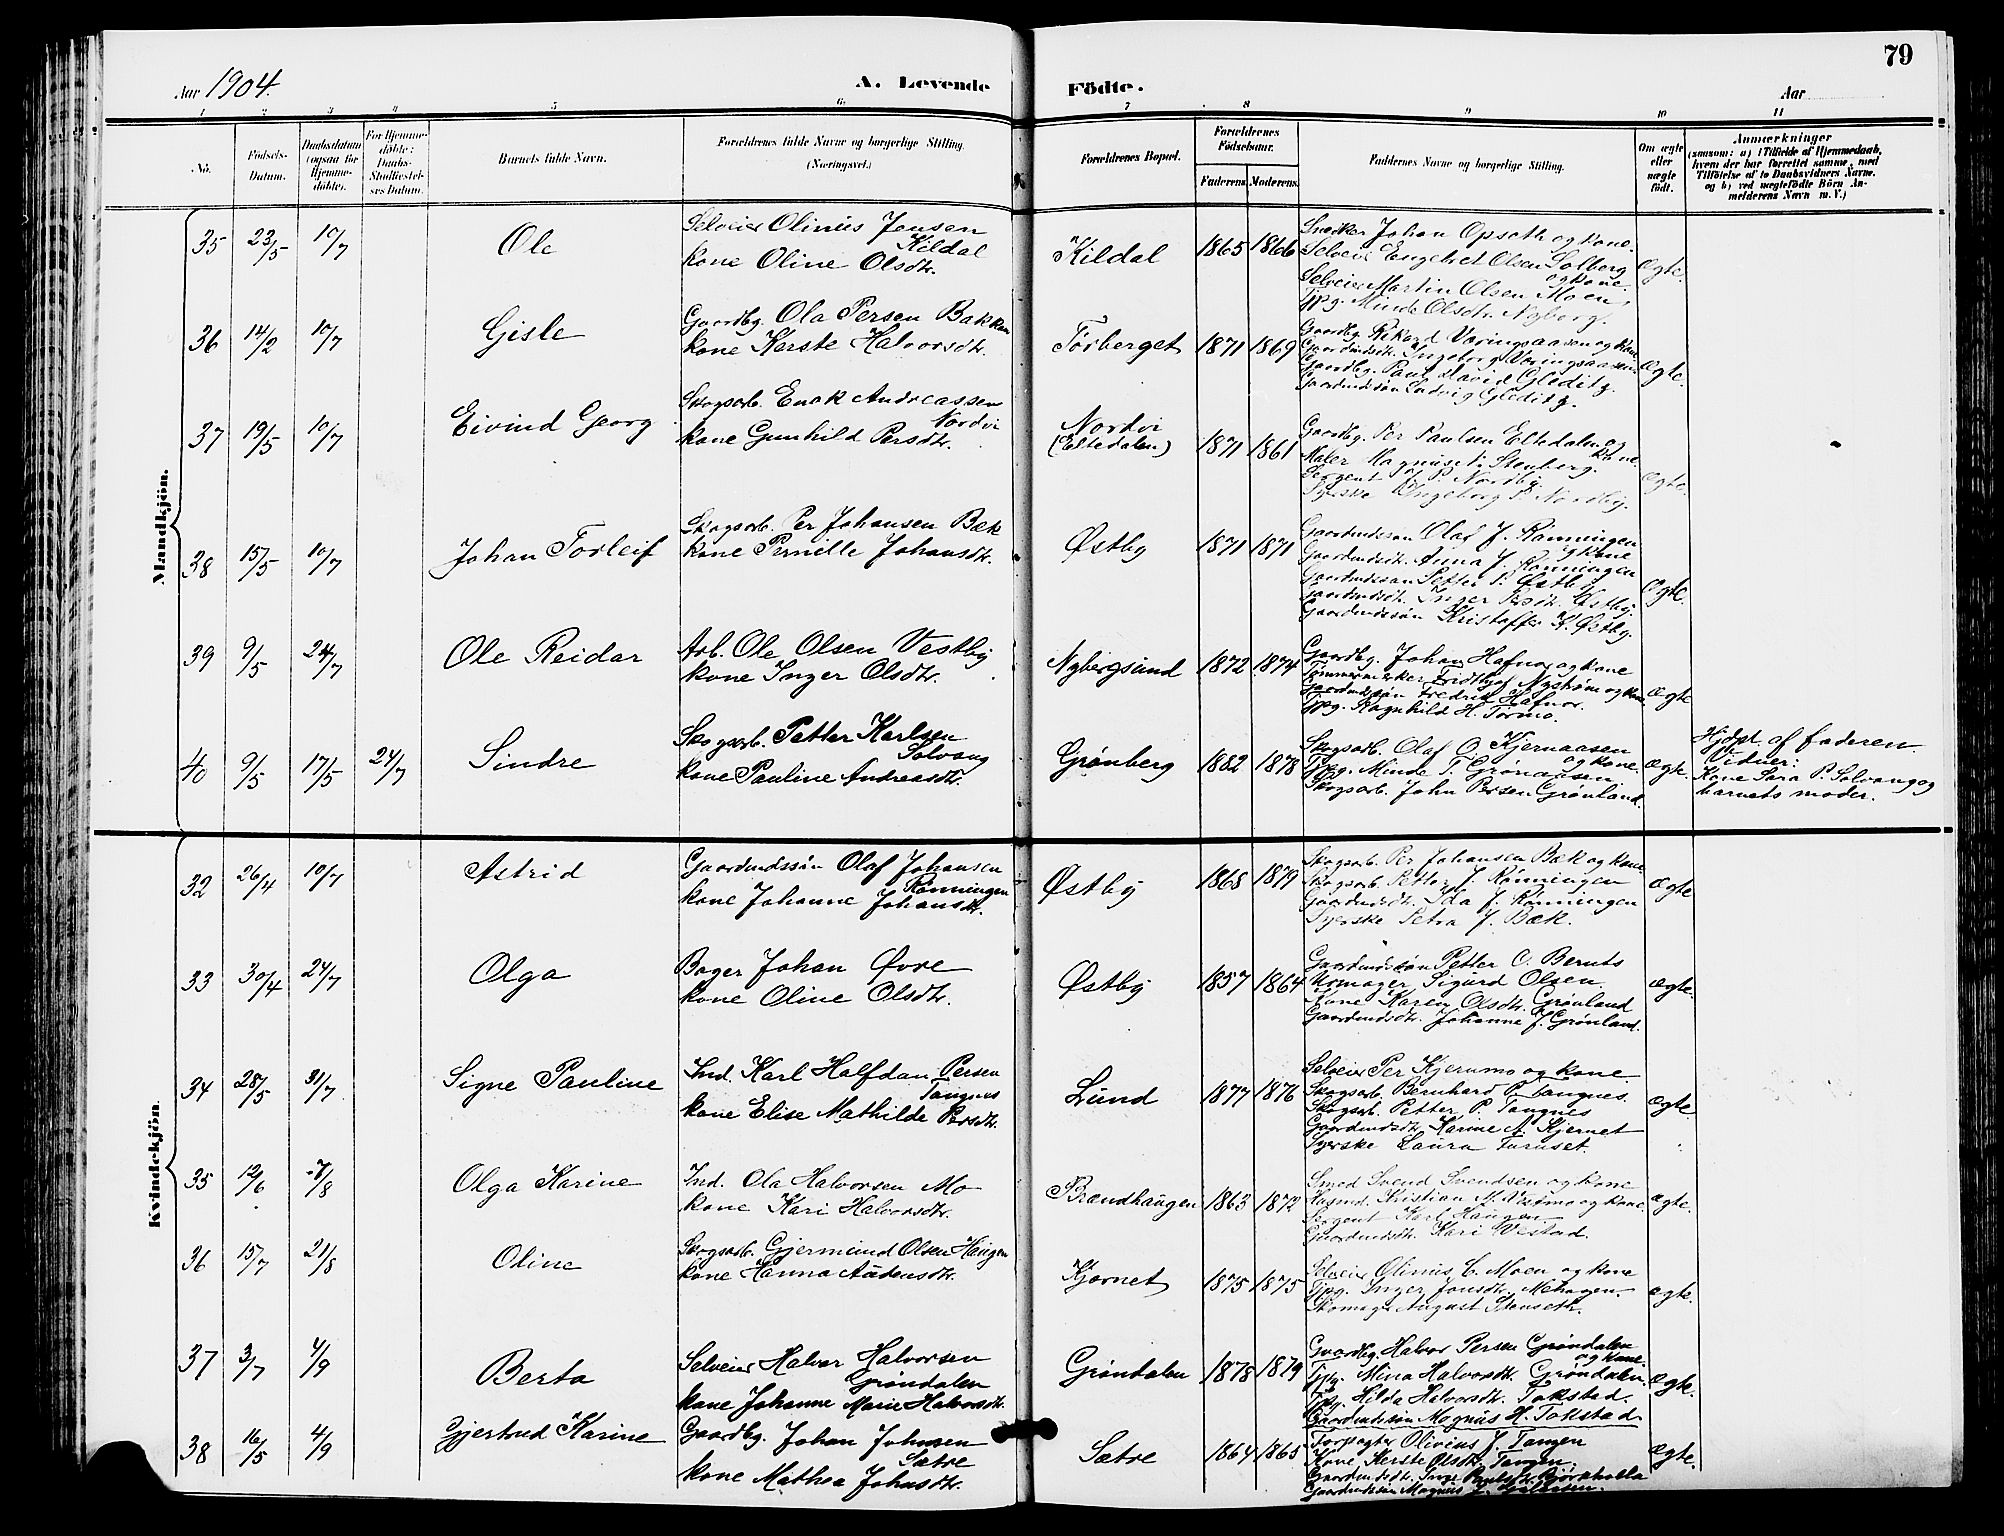 79
Aar 1904.
A. Levende Födte.
Aar
1 2 3 4 5 6 7 8 9 10 11
No.
Födsels-Datum.
Daabsdatum (ogsaa for Hjemme-döbte).
For Hjemme-döbte: Daabs-Stadfæstelses Datum.
Barnets fulde Navn.
Forældrenes fulde Navne og borgerlige Stilling. (Næringsvei.)
Forældrenes Bopæl.
Forældrenes Födselsaar.
Faderens. Moderens.
Faddernes Navne og borgerlige Stilling.
Om ægte eller uægte födt.
Anmærkninger
(saasom: a) i Tilfælde af Hjemmedaab, hvem der har forrettet samme, med Tilföielse af to Daabsvidners Navne. og b) ved uægtefödte Börn Anmelderens Navn m. V.)
Mandkjön.
35 23/5 10/7 Ole
Selveier Olinus Jensen Kildal
kone Oline Olsdtr.
Kildal 1865 1866
Snedker Johan Opsath og kone.
Selveier Engebret Olsen Solberg og kone.
Selveier Martin Olsen Moen,
Tjpg. Minde Olsdtr. Nyborg.
Ægte.
36 14/2 10/7 Gisle
Gaardbg. Ola Persen Bakken
kone Kerste Halvorsdtr.
Törberget 1871 1869
Gaardbg. Rikard Væringsaasen og kone
Gaardmdsdtr. Ingeborg Væringsaasen.
Gaardbg. Paul David Gleditz
Gaardmdssön Ludvig Gleditz.
Ægte.
37 19/5 10/7 Eivind Georg
Skogsarb. Enok Andreassen Nordvi
kone Gunhild Persdtr.
Nordvi (Eltedalen) 1871 1861
Gaardbg. Per Paulsen Eltedalen og kone.
Maler Magnus Stenberg.
Sergent P. Nordby.
Syerske Ingeborg P. Nordby.
Ægte.
38 15/5 10/7 Johan Torleif
Skogsarb. Per Johansen Bæk
kone Pernille Johansdtr.
Østby 1871 1871
Gaardmdssøn Olaf J. Rønningen og kone
Gaardmdsdtr. Anna J. Rønningen
Gaardmdssøn Petter P. Østby
Gaardmdsdtr. Inger Psdtr. Østby.
Gaardmdssøn Kristoffer K. Østby.
Ægte.
39 9/5 24/7 Ole Reidar
Arb. Ole Olsen Vestby
kone Inger Olsdtr.
Nybergsund 1872 1874
Gaardbg. Johan Hafnor og kone
Tömmermerker Fridthjof Nyström og kone.
Gaardmdssön Fredrik Hafnor.
Tjpg. Ragnhild H. Tormo.
Ægte
40 9/5 17/5 24/7 Sindre
Skogsarb. Petter Karlsen Solvang
kone Pauline Andreasdtr.
Grønberg 1882 1878
Skogsarb. Olaf O. Kjernaasen og kone.
Tjpg. Minde T. Grönaasen
Skogsarb. John Persen Grønland.
Ægte.
Hjdpt. af faderen
Vidner:
Kone Sara P. Solvang og
barnets moder.
Kvindekjön
32 26/4 10/7 Astrid
Gaardmdssøn Olaf Johansen Rønningen
kone Johanne Johansdtr.
Østby 1868 1879
Skogsarb. Per Johansen Bæk og kone.
Skogsarb. Petter J. Rønningen
Gaardmdsdtr. Ida J. Rønningen
Syerske Petra J. Bæk.
Ægte
33 30/4 24/7 Olga
Bager Johan Øvre
kone Oline Olsdtr.
Østby 1857 1864
Gaardmdssøn Petter C. Bernts
Skomager Sigurd Olsen.
Kone Karen Olsdtr. Grønland
Gaardmdsdtr. Johanne J. Grønland.
Ægte.
34 28/5 31/7 Signe Pauline
Ind. Karl Halfdan Persen Tangnes
kone Elise Mathilde Persdtr.
Lund 1877 1876
Selveier Per Kjernmo og kone.
Skogsarb. Bernhard P. Tangnes.
Skogsarb. Petter P. Tangnes
Gaardmdsdtr. Karine A. Kjernet
Syerske Laura Furuset.
Ægte
35 12/6 7/8 Olga Karine
Ind. Ola Halvorsen Mo
kone Kari Halvorsdtr.
Brændhaugen 1863 1872
Smed Svend Svendsen og kone
Husmd. Kristian M. Vestmo og kone.
Sergent Karl Haugen
Gaardmdsdtr. Kari Vestad.
Ægte.
36 15/7 21/8 Oline
Skogsarb. Gjermund Olsen Haugen
kone Hanna Audensdtr.
Kjernet 1875 1875
Selveier Olinus C. Moen og kone
Tjpg. Inger Jonsdtr. Mehagen.
Skomager August Stenseth.
Ægte.
37 3/7 4/9 Berta
Selveier Halvor Halvorsen Grøndalen
kone Johanne Marie Halvorsdtr.
Grøndalen 1878 1879
Gaardbg. Halvor Persen Grøndalen og kone.
Tjpg. Mina Halvorsdtr. Grøndalen.
Tjpg. Hilda Halvorsdtr. Tokstad.
Gaardmdssøn Magnus H. Tokstad
Ægte.
38 16/5 4/9 Gjertrud Karine
Gaardbg. Johan Johnsen Sætre
kone Mathea Johnsdtr.
Sætre 1864 1865
Forpagter Olivius J. Tangen
Kone Kerste Olsdtr. Tangen.
Gaardmdsdtr. Inger Paulsdtr. Bjørnholla
Gaardmdssøn Magnus
Ægte.